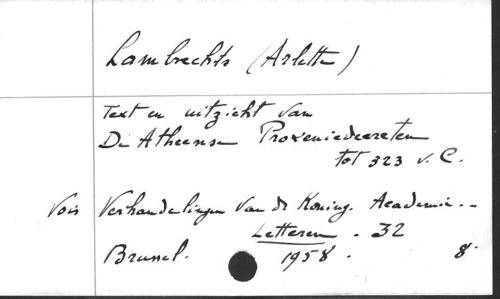 Lambrechts (Arlette)
Text en uitzicht van
De Atheense Proxeniedecreten
tot 323 v. C.
Vois Verhandelingen van de Koning. Academie..
Letteren. 32
Brussel. 1958. 8°